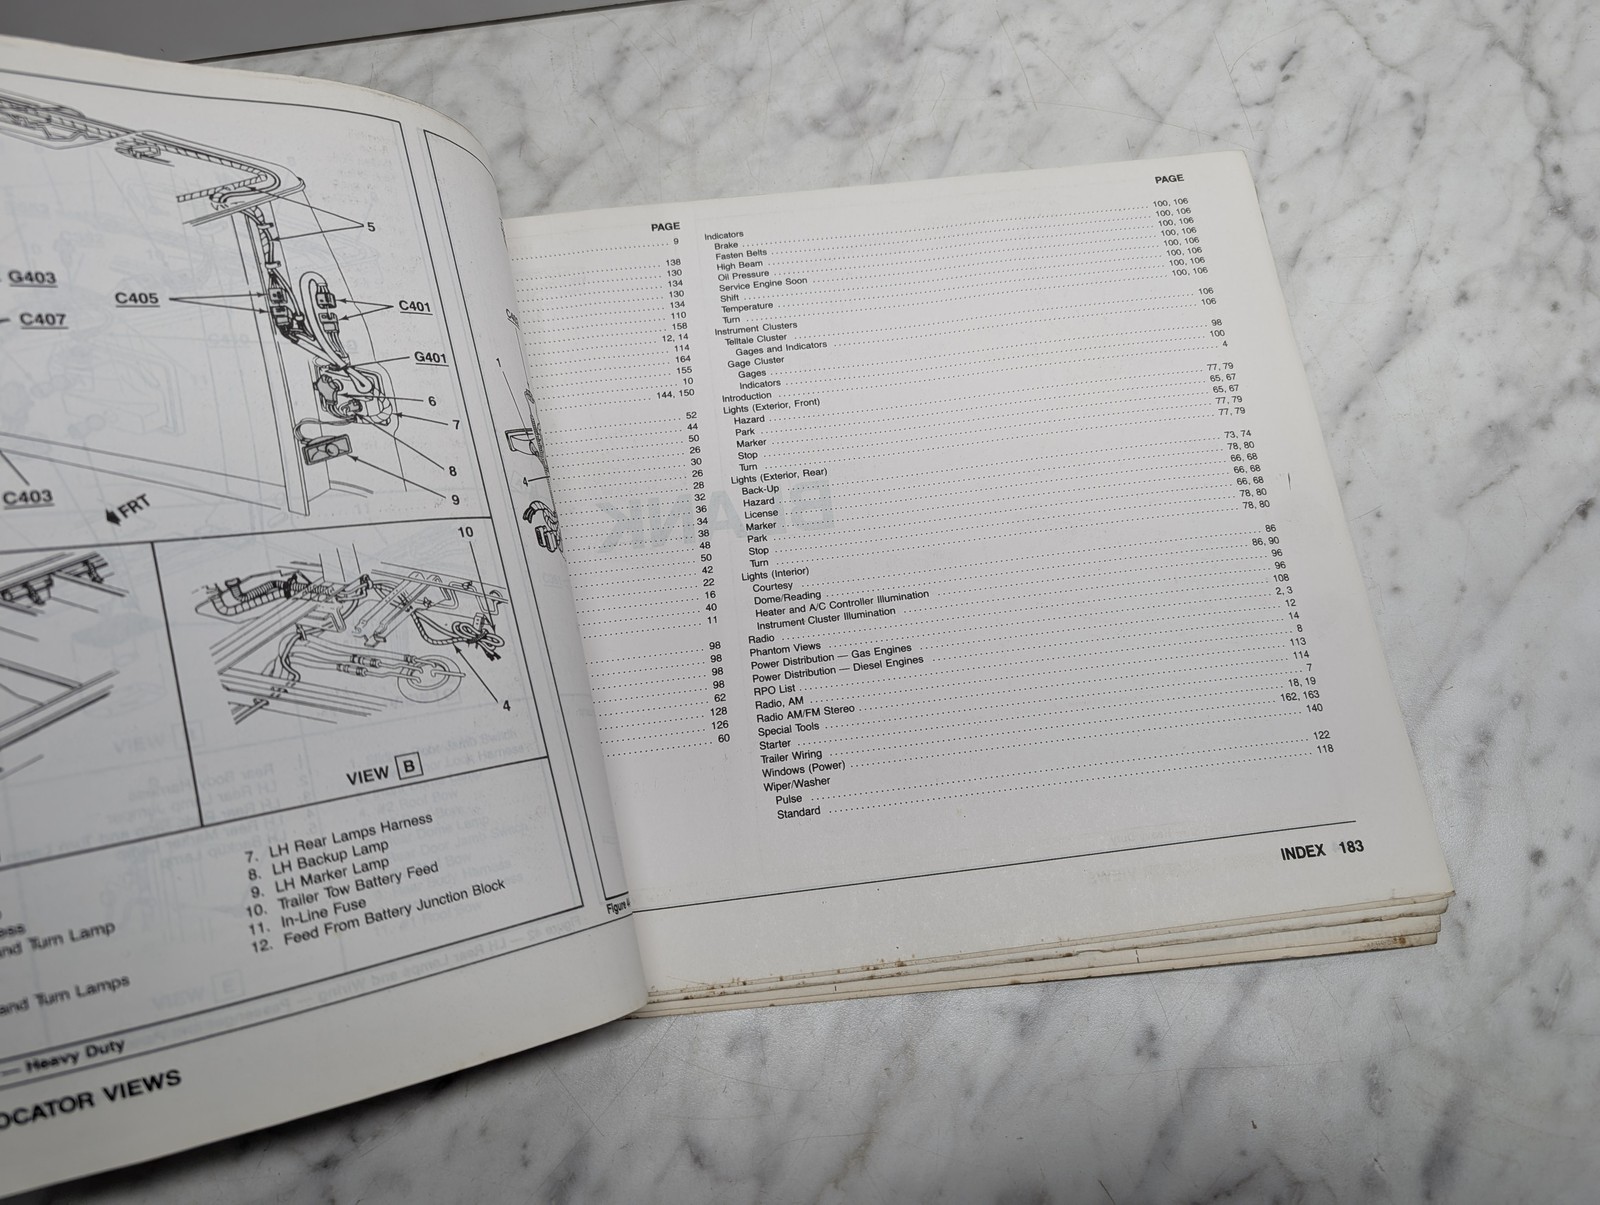 5
G403
C405
C407
C401
G401
6
7
8
9
C403
FRT
10
4
VIEW B
7. LH Rear Lamps Harness
8. LH Backup Lamp
9. LH Marker Lamp
10. Trailer Tow Battery Feed
11. In-Line Fuse
12. Feed From Battery Junction Block
and Turn Lamp
and Turn Lamps
— Heavy Duty
OCATOR VIEWS
1
4
Figure
PAGE
9
138
130
134
130
134
110
158
12, 14
114
164
155
10
144, 150
52
44
50
26
30
26
28
32
36
34
38
48
50
42
22
16
40
11
98
98
98
98
62
128
126
60
PAGE
Indicators
Brake 100, 106
Fasten Belts 100, 106
High Beam 100, 106
Oil Pressure 100, 106
Service Engine Soon 100, 106
Shift 100, 106
Temperature 100, 106
Turn 100, 106
Instrument Clusters
Telltale Cluster 106
Gages and Indicators 106
Gage Cluster
Gages 98
Indicators 100
Introduction 4
Lights (Exterior, Front)
Hazard 77, 79
Park 65, 67
Marker 65, 67
Stop 77, 79
Turn 77, 79
Lights (Exterior, Rear)
Back-Up 73, 74
Hazard 78, 80
License 66, 68
Marker 66, 68
Park 66, 68
Stop 78, 80
Turn 78, 80
Lights (Interior)
Courtesy 86
Dome/Reading 86, 90
Heater and A/C Controller Illumination 96
Instrument Cluster Illumination 96
Radio 108
Phantom Views 2, 3
Power Distribution — Gas Engines 12
Power Distribution — Diesel Engines 14
RPO List 8
Radio, AM 113
Radio AM/FM Stereo 114
Special Tools 7
Starter 18, 19
Trailer Wiring 162, 163
Windows (Power) 140
Wiper/Washer
Pulse 122
Standard 118
INDEX 183
BLANK